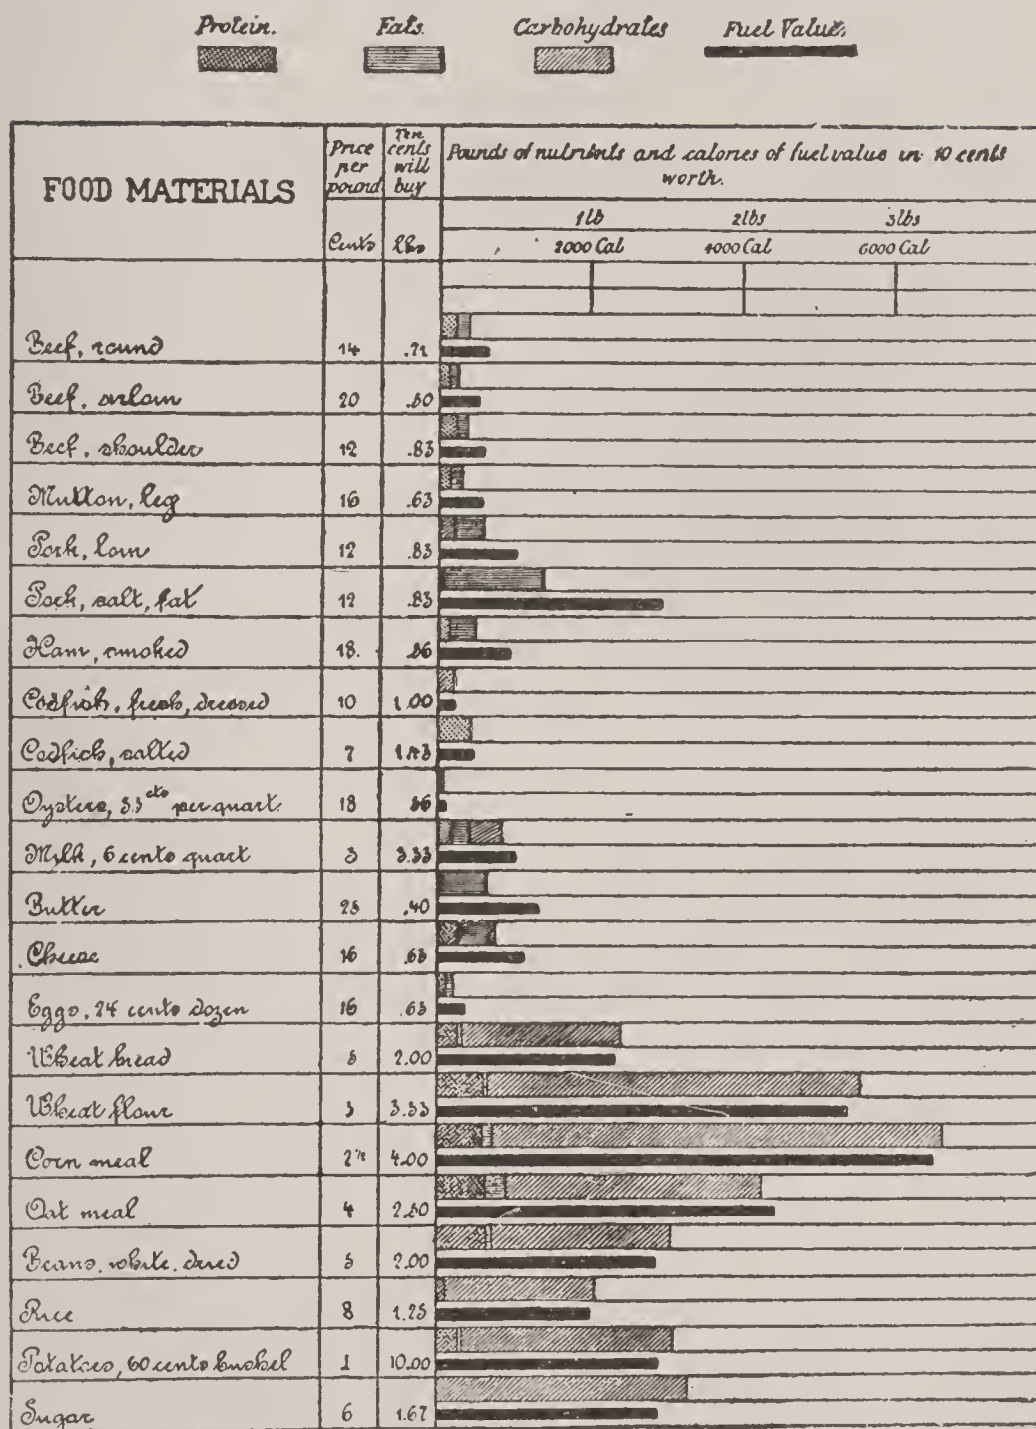 Protein. Fats. Carbohydrates Fuel Value.
FOOD MATERIALS
Price per pound
Ten cents will buy
Pounds of nutrients and calories of fuel value in 10 cents worth.
1lb 2lbs 3lbs
Cents Lbs 2000 Cal 4000 Cal 6000 Cal
Beef, round 14 .71
Beef, sirloin 20 .50
Beef, shoulder 12 .83
Mutton, leg 16 .63
Pork, loin 12 .83
Pork, salt, fat 12 .83
Ham, smoked 18.
Codfish, fresh, dressed 10 1.00
Codfish, salted 7 1.43
Oysters, 35 cts per quart. 18
Milk, 6 cents quart 3 3.33
Butter 25 .40
Cheese 16 .63
Eggs, 24 cents dozen 16 .63
Wheat bread 5 2.00
Wheat flour 3 3.33
Corn meal 2½ 4.00
Oat meal 4 2.50
Beans, white, dried 5 2.00
Rice 8 1.25
Potatoes, 60 cents bushel 1 10.00
Sugar 6 1.67